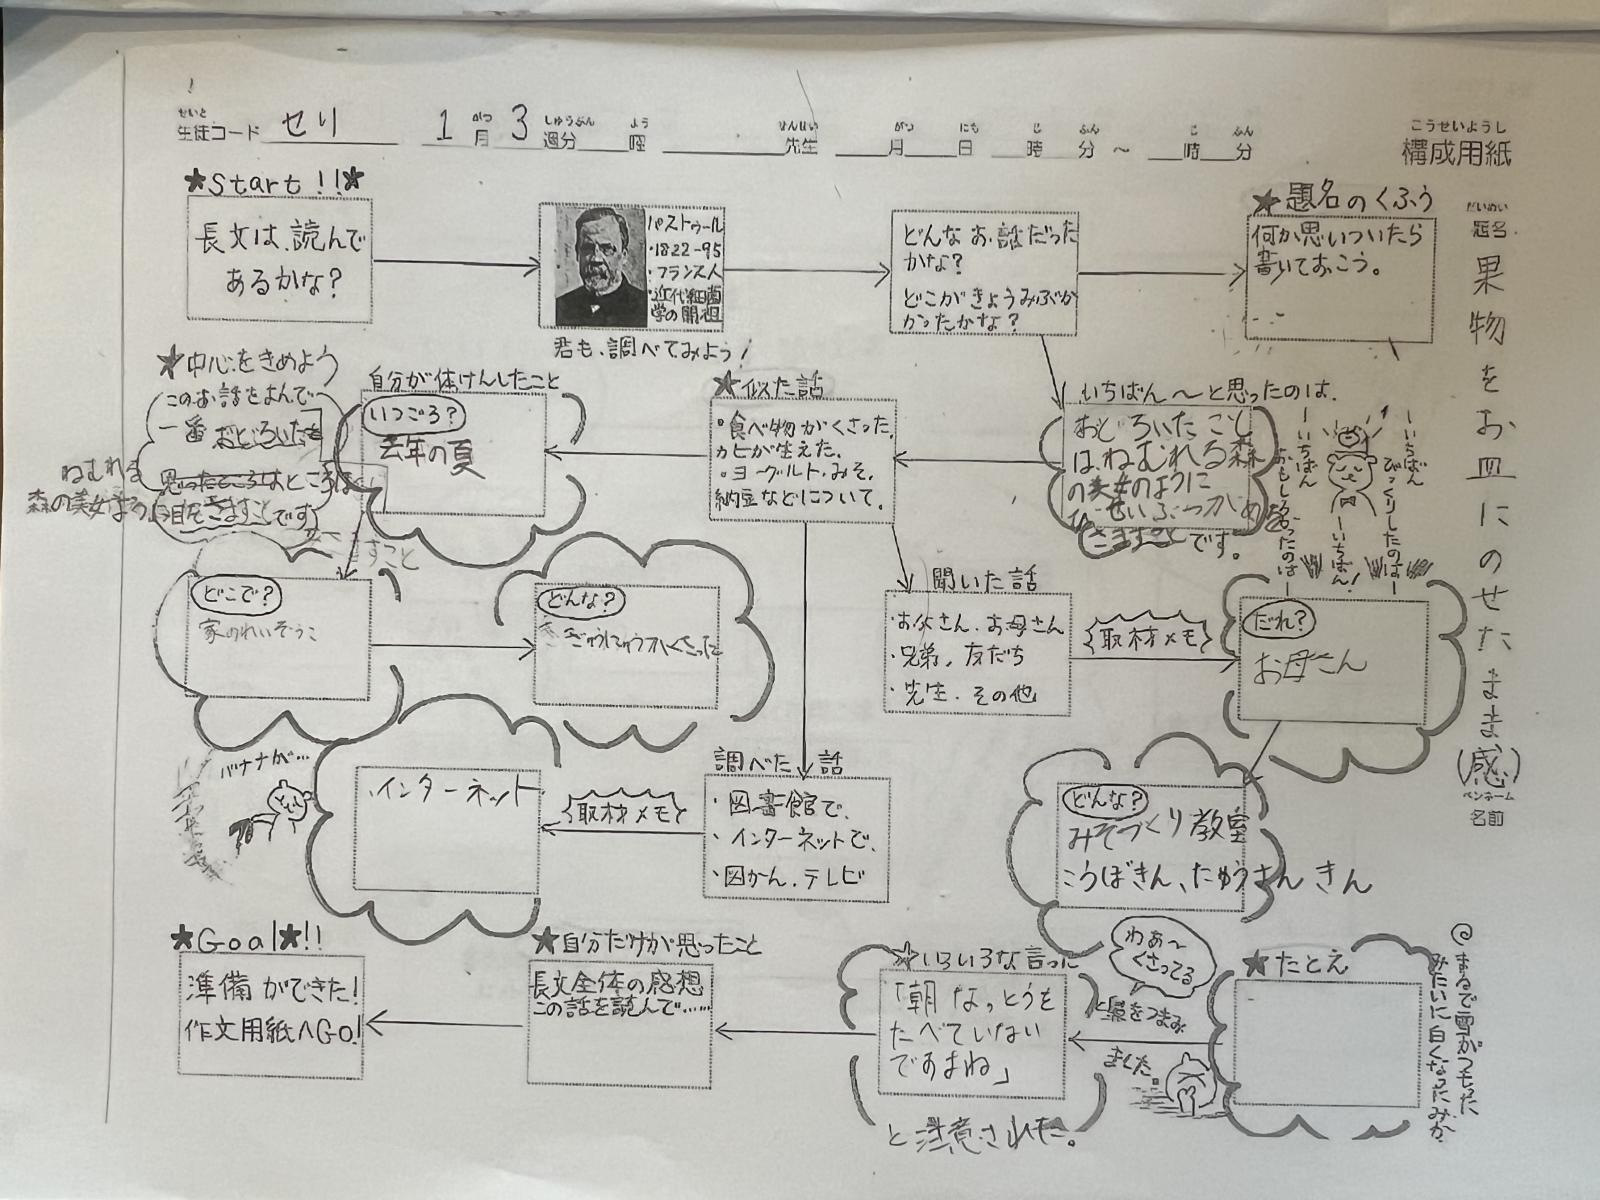 せいと
生徒コード せり
1月3週分 曜 先生 月 日 時 分 ～ 時 分
がつ しゅうぶん よう せんせい がつ にち じ ふん じ ふん
こうせいようし
構成用紙
だいめい
題名
果物をお皿にのせたまま(感)
ペンネーム
名前
★Start!!★
長文は、読んで
あるかな?
パストゥール
・1822-95
・フランス人
・近代細菌
学の開祖
君も、調べてみよう!
どんなお話だった
かな?
どこがきょうみぶか
かったかな?
★題名のくふう
何か思いついたら
書いておこう。
いちばん〜と思ったのは、
おどろいたこと
は、ねむれる森
の美女のように
びせいぶつがめ
をさますことです。
ーいちばん
おもしろかったのはー
ーいちばん!
ーいちばん
びっくりしたのはー
★似た話
・食べ物がくさった、
カビが生えた。
・ヨーグルト・みそ、
納豆などについて。
自分が体けんしたこと
いつごろ?
去年の夏
★中心をきめよう
このお話をよんで
一番
ねむれる
森の美女
どこで?
家のれいぞうこ
どんな?
ぎゅうにゅうがくさった
聞いた話
・お父さん、お母さん
・兄弟、友だち
・先生、その他
取材メモ
だれ?
お母さん
どんな?
みそづくり教室
こうぼきん、にゅうさんきん
調べた話
・図書館で、
・インターネットで、
・図かん、テレビ
取材メモ
・インターネット
バナナが…
★たとえ
まるで雪がつもった
みたいに白くなったみか
★いろいろな言った
「朝なっとうを
たべていない
ですよね」
と注意された。
わぁ〜
くさってる
と鼻をつまみ
ました。
★自分だけが思ったこと
長文全体の感想
この話を読んで……
★Goal★!!
準備ができた!
作文用紙へGo!